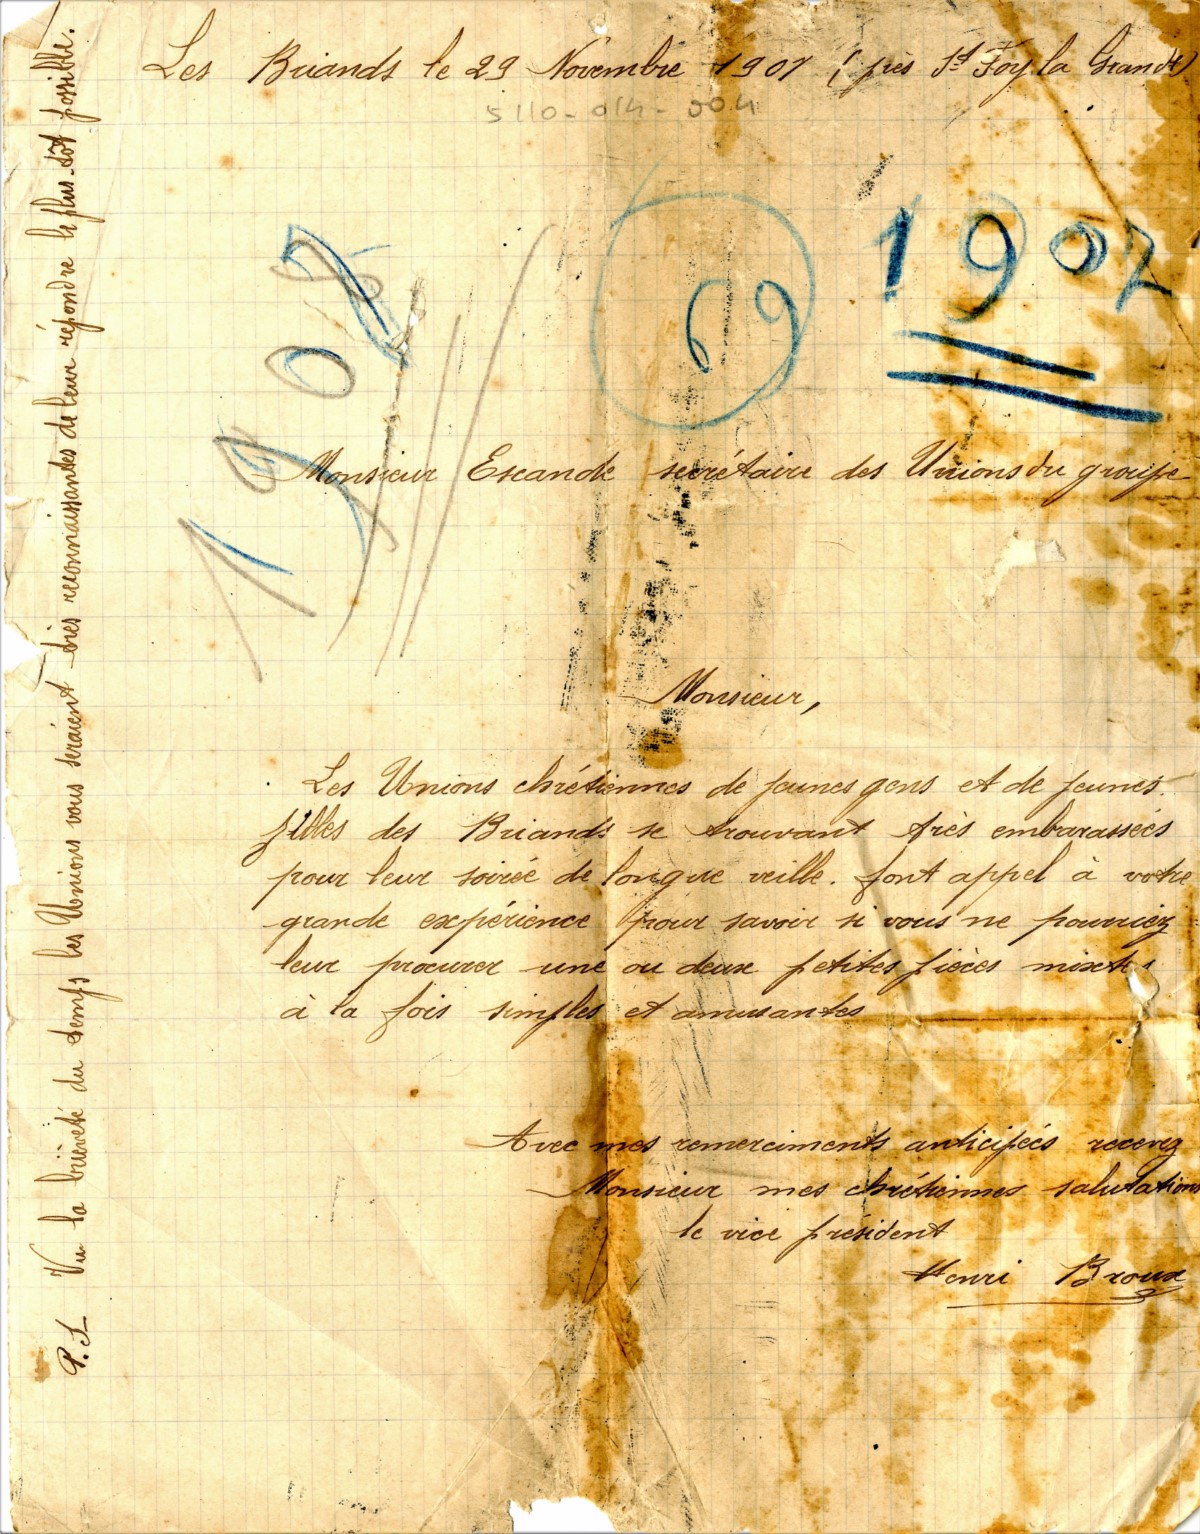 Les Briands le 29 Novembre 1907 (près St Foy la Grande)
5110-014-004
1907
69
1908
Monsieur Escande secrétaire des Unions du groupe
Monsieur,
Les Unions chrétiennes de jeunes gens et de jeunes
filles des Briands se trouvant très embarassées
pour leur soirée de longue veille. font appel à votre
grande expérience pour savoir si vous ne pourriez
leur procurer une ou deux petites pièces mixtes
à la fois simples et amusantes
Avec mes remerciments anticipés recevez
Monsieur mes chrétiennes salutations
le vice président
Henri Broux
P.S Vu la brièveté du temps les Unions vous seraient très reconnaissantes de leur répondre le plus tôt possible.